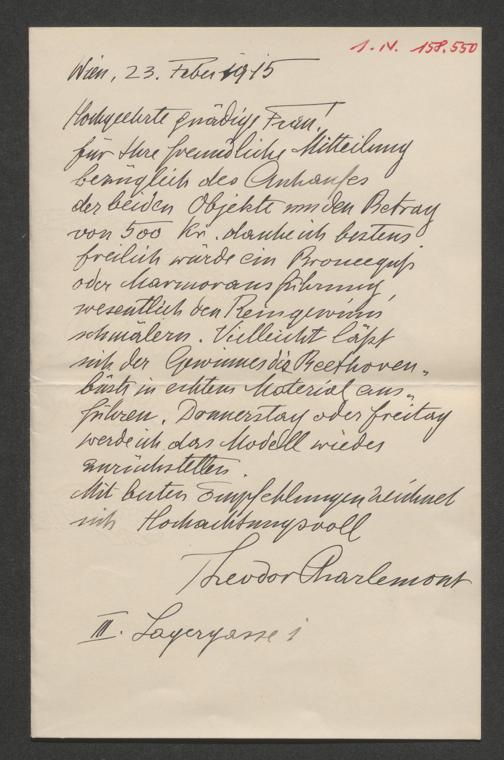 I. N. 158.550
Wien, 23. Feber 1915
Hochgeehrte gnädige Frau!
für Ihre freundliche Mitteilung
bezüglich des Ankaufes
der beiden Objekte um den Betrag
von 500 Kr. danke ich bestens
freilich würde ein Bronceguß
oder Marmorausführung,
wesentlich den Reingewinn
schmälern. Vielleicht läßt
sich der Gewinner die Beethoven-
büste in echtem Material aus-
führen. Donnerstag oder Freitag
werde ich das Modell wieder
zurückstellen.
Mit besten Empfehlungen zeichnet
sich Hochachtungsvoll
Theodor Charlemont
III. Lagergasse 1